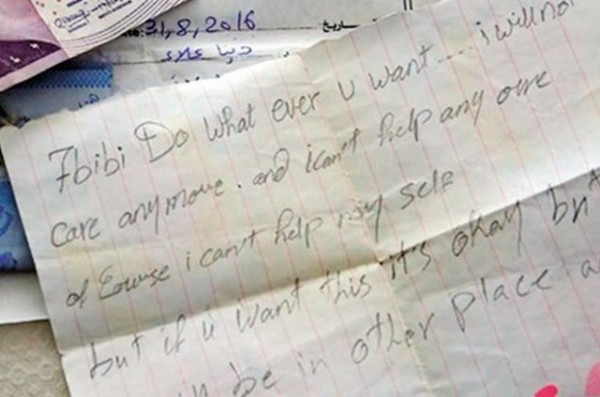 31,8,2016
دنيا علاء
7bibi Do what ever u want.... i will not
care anymore. and i can't help any one
of Course i can't help my self
but if u want this it's okay but
be in other place